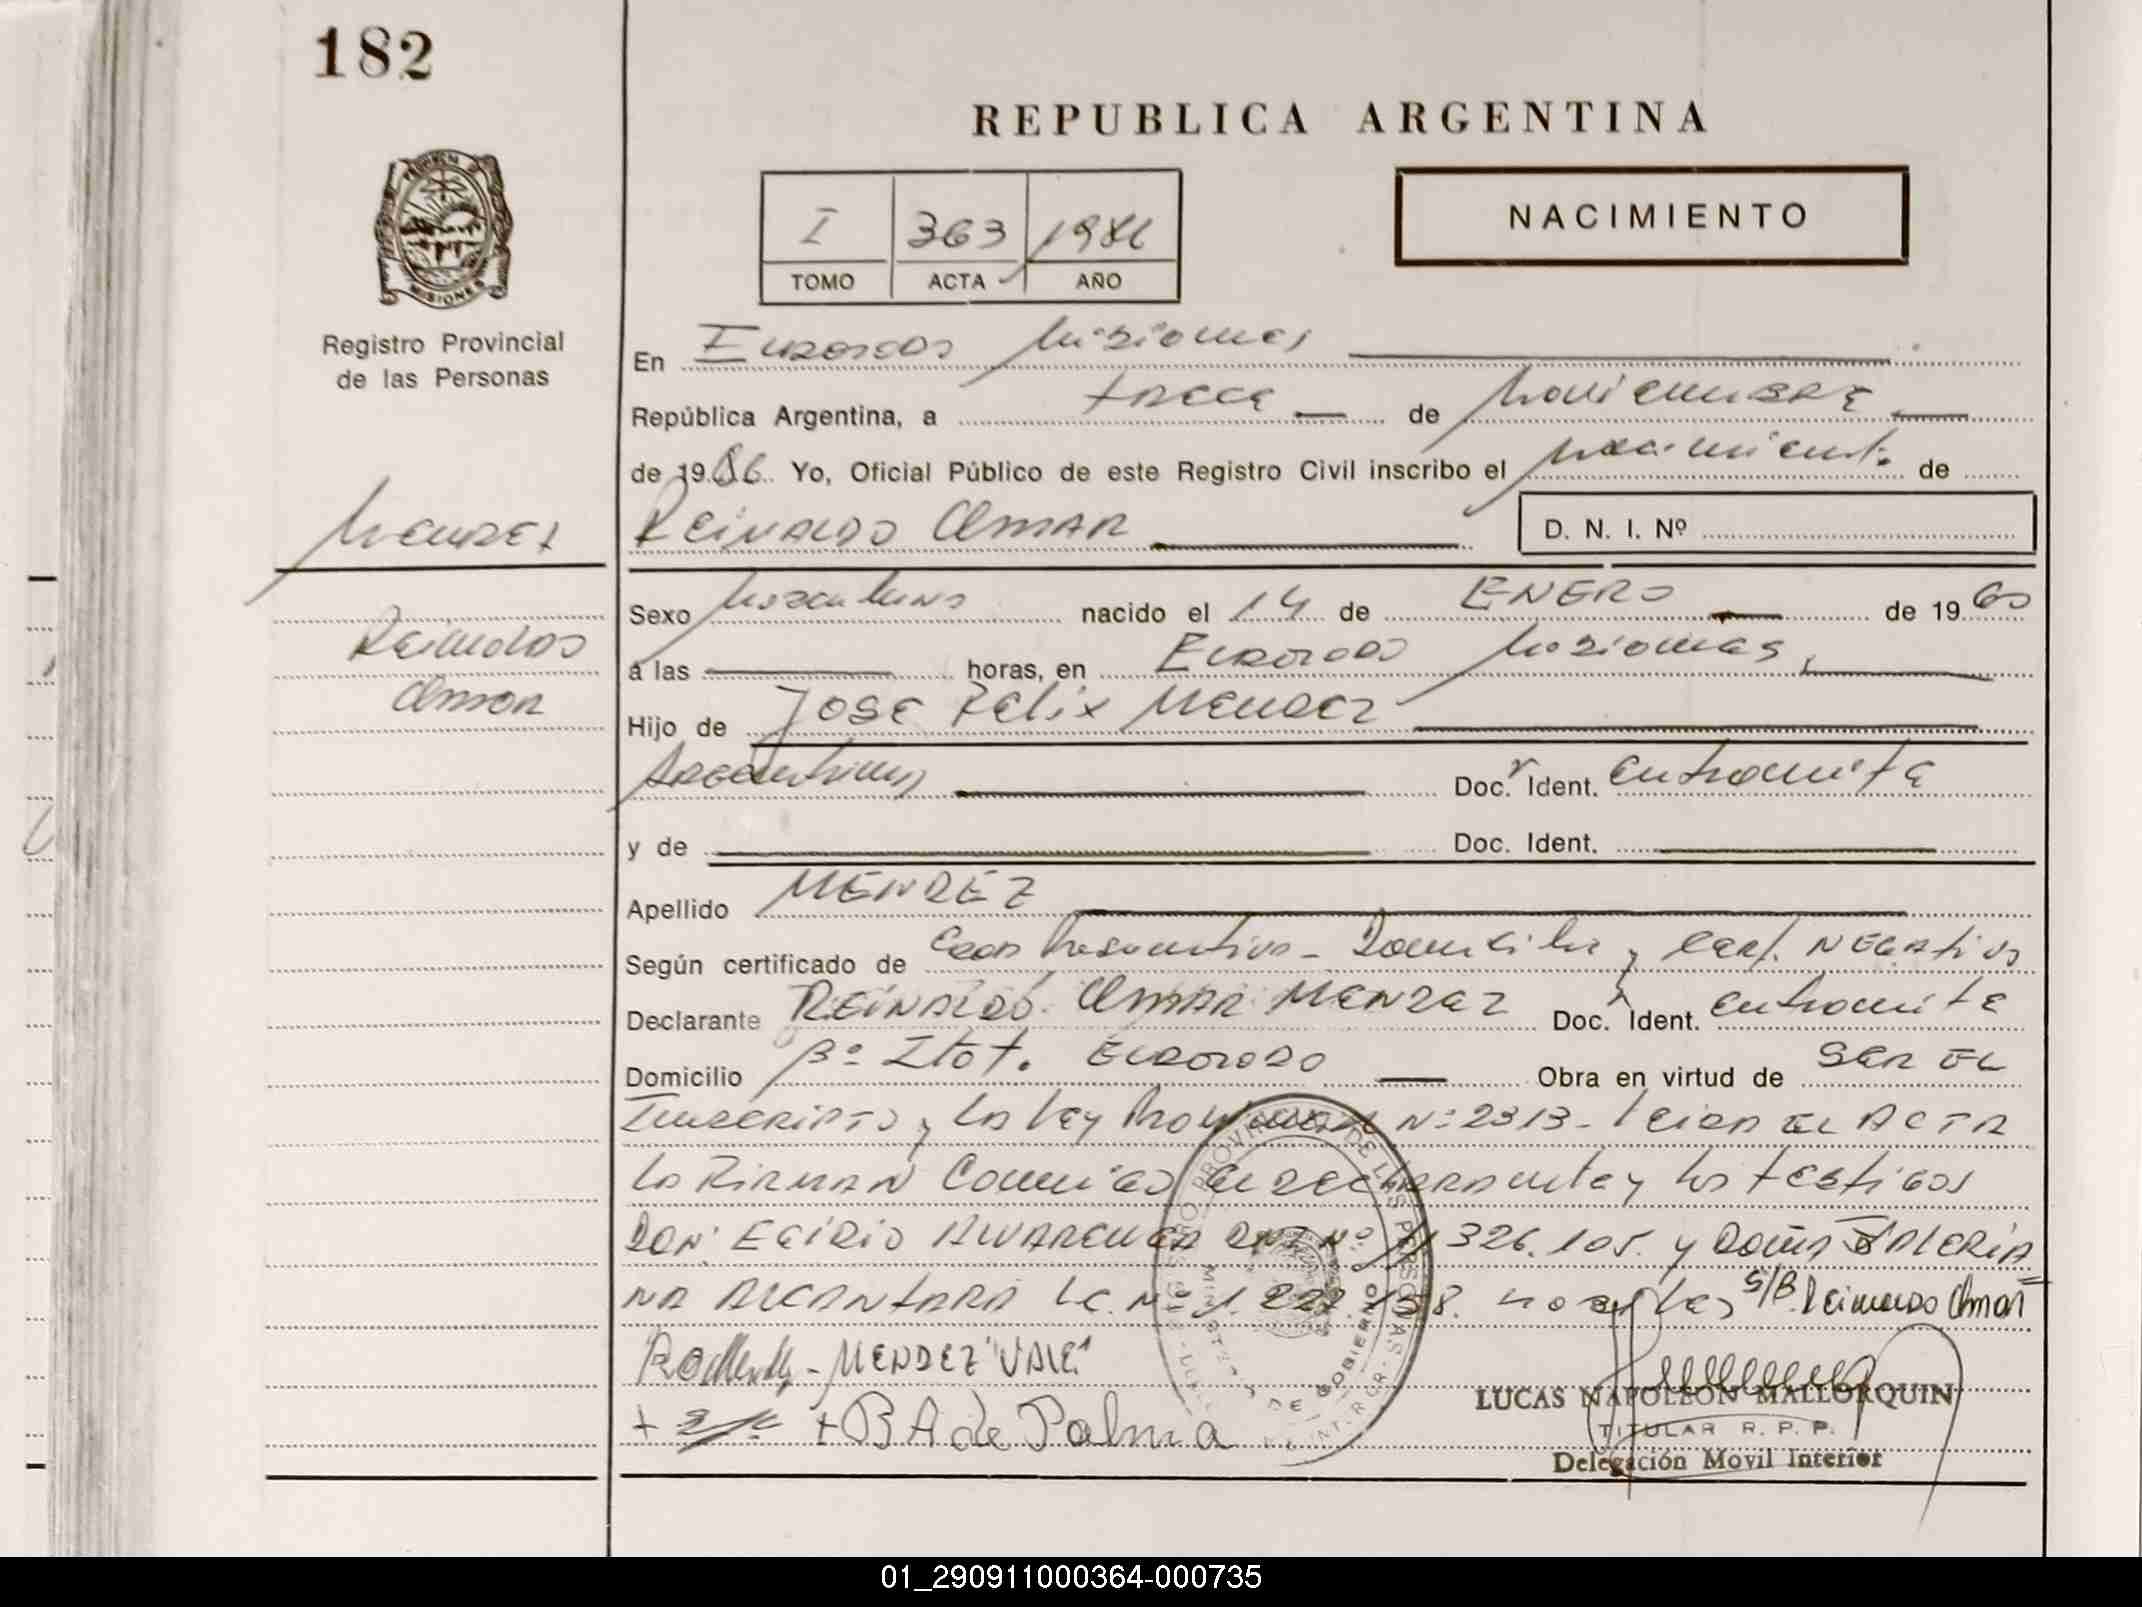 182
REPUBLICA ARGENTINA
I 363 1986
TOMO ACTA AÑO
NACIMIENTO
MISIONES
Registro Provincial
de las Personas
En Eldorado Misiones
República Argentina, a trece de Noviembre
de 1986. Yo, Oficial Público de este Registro Civil inscribo el nacimiento de
Mendez
REINALDO OMAR
D. N. I. Nº
Sexo Masculino nacido el 14 de ENERO de 1960
Reinaldo
Omar
a las horas, en Eldorado Misiones,
Hijo de JOSE Felix MENDEZ
Argentino Doc. Ident. en tramite
y de Doc. Ident.
Apellido MENDEZ
Según certificado de Edad Presuntiva - Domicilio y Cert. NEGAtivo
Declarante REINALDO OMAR MENDEZ Doc. Ident. en tramite
Domicilio Bº Eldorado Obra en virtud de SER EL
INSCRIPTO y la Ley Provincial Nº 2313 - Leida EL ACTA
la FIRMAN Conmigo el declarante y los testigos
DON EGIDIO ALVARENGA DNI Nº 11.326.105. y Doña VALERIA
NA ALCANTARA L.C. Nº 1. S/B. Reinaldo Omar
MENDEZ "VALE"
+ BA de Palma
LUCAS NAPOLEON MALLORQUIN
TITULAR R. P. P.
Delegación Movil Interior
01_290911000364-000735